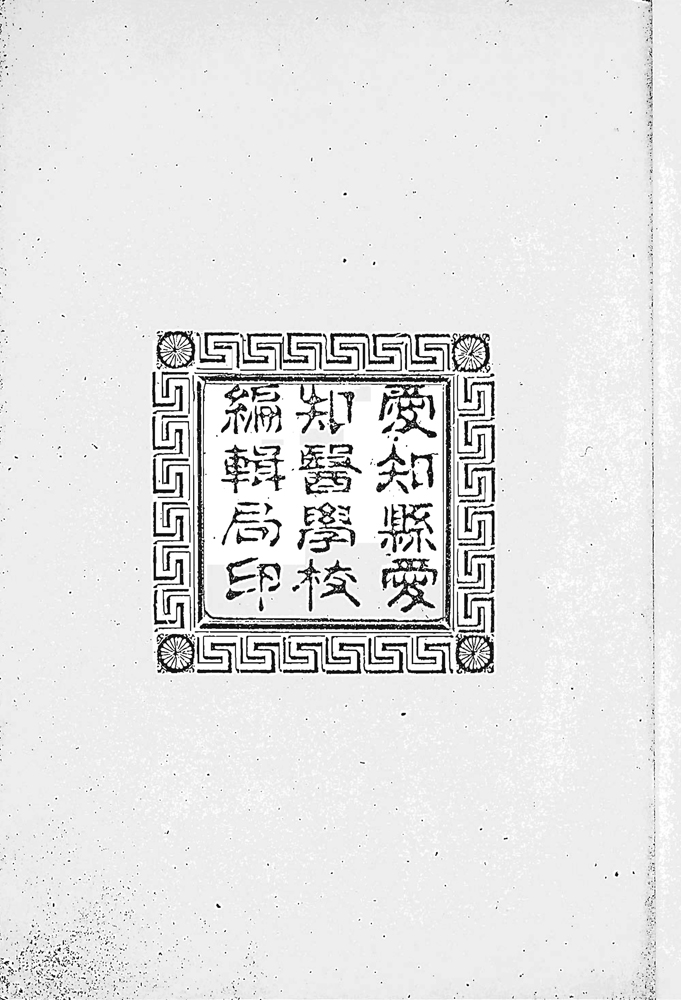 愛知縣愛
知醫學校
編輯局印